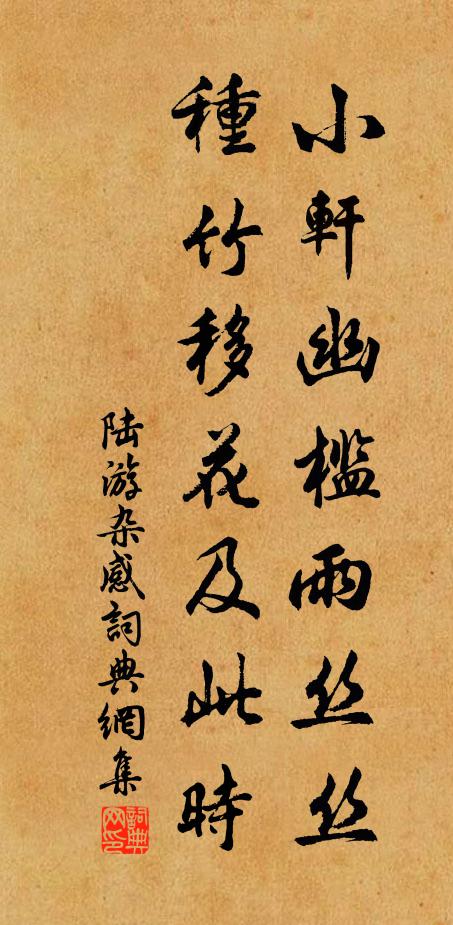 小軒幽檻雨丝丝
種竹移花及此時
陆游杂感詞典網集
詞典网印